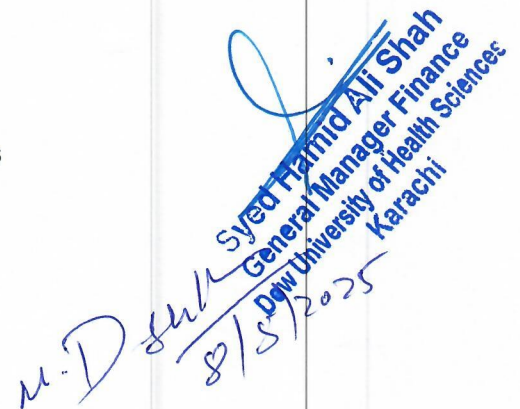 Syed Hamid Ali Shah
General Manager Finance
Dow University of Health Sciences
Karachi
8/5/2025